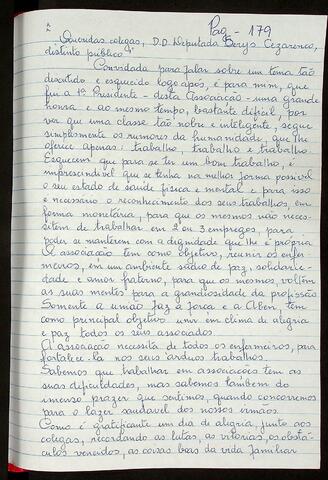 Pag - 179
Queridas colegas, D.D. Deputada Serys Slhessarenco,
distinto público
Convidada para falar sobre um tema tão
discutido e esquecido logo após, é para mim, que
fui a 1ª Presidente - desta Associação - uma grande
honra e ao mesmo tempo, bastante difícil, por
ver que uma classe tão nobre e inteligente, segue
simplesmente os rumores da humanidade, que lhe
oferece apenas: trabalho, trabalho e trabalho.
Esquecem que para se ter um bom trabalho, é
imprescindível que se tenha na melhor forma possível
o seu estado de saúde física e mental e para isso
é necessário o reconhecimento dos seus trabalhos, em
forma monetária, para que os mesmos não neces-
sitem de trabalhar em 2 ou 3 empregos, para
poder se manterem com a dignidade que lhe é própria
A associação tem como objetivo, reunir os enfer
meiros, em um ambiente sadio de paz, solidarie-
dade e amor fraterno, para que os mesmos, voltem
as suas mentes para a grandiosidade da profissão
Somente a união faz a força e a ABen, tem
como principal objetivo unir em clima de alegria
e paz todos os seus associados.
A associação necessita de todos os enfermeiros, para
fortalecê-la nos seus árduos trabalhos.
Sabemos que trabalhar em associações tem as
suas dificuldades, mas sabemos também do
imenso prazer que sentimos, quando concorremos
para o lazer saudável dos nossos irmãos.
Como é gratificante um dia de alegria, junto aos
colegas, recordando as lutas, as vitórias, os obstá-
culos vencidos, as coisas boas da vida familiar